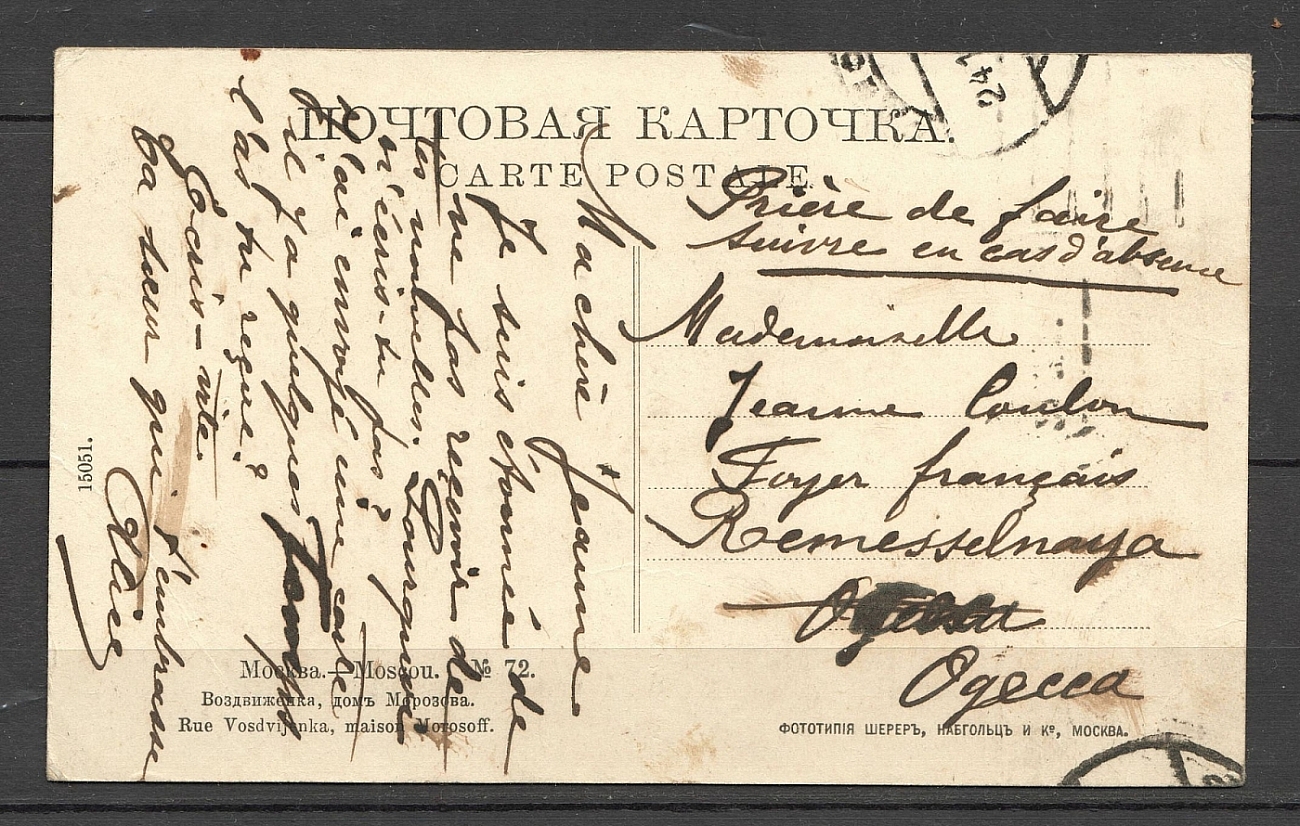 ПОЧТОВАЯ КАРТОЧКА.
CARTE POSTALE
Prière de faire
suivre en cas d'absence
Mademoiselle
Jeanne Coulon
Foyer français
Remesselnaya
Одесса
Ma chère Jeanne
Je suis étonnée de
ne pas recevoir de
tes nouvelles. Pourquoi
n'écris-tu pas?
Je t'ai envoyé une carte
il y a quelques temps
l'as tu reçue?
Écris-vite.
Ta sœur qui t'embrasse
Alice
15051.
Москва.—Moscou. № 72.
Воздвиженка, домъ Морозова.
Rue Vosdvijenka, maison Morosoff.
ФОТОТИПІЯ ШЕРЕРЪ, НАБГОЛЬЦЪ И Кº, МОСКВА.
24